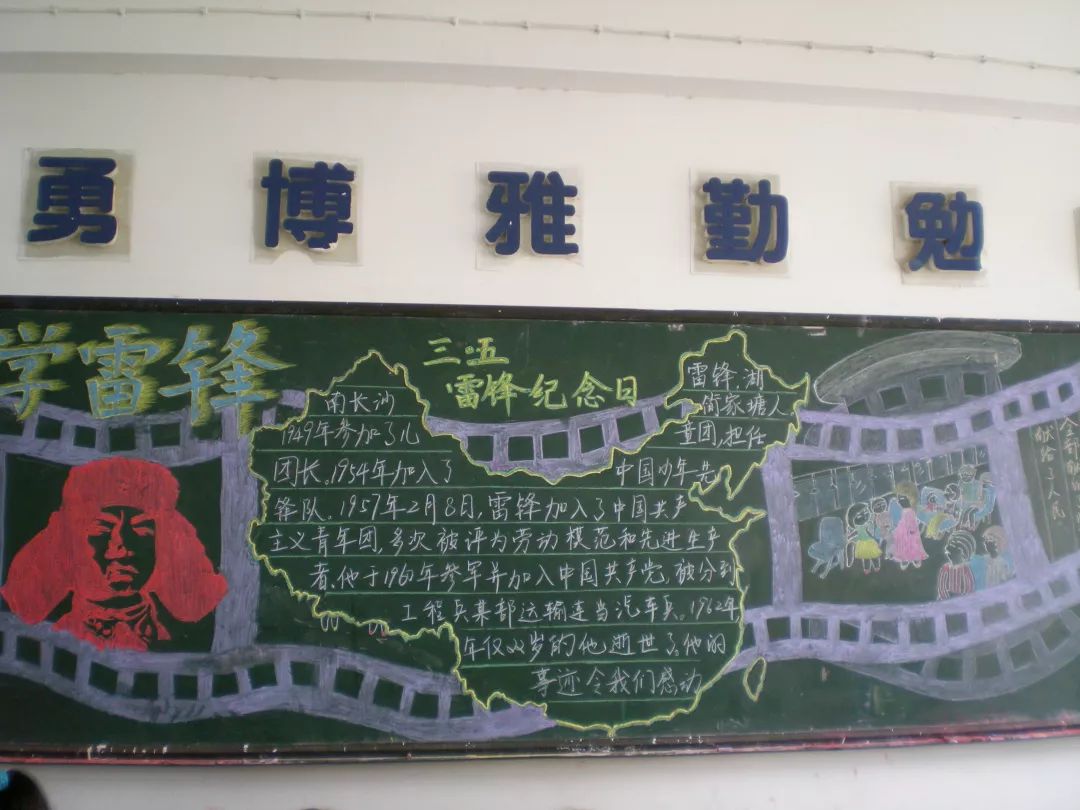 勇 博 雅 勤 勉
学雷锋
三·五
雷锋纪念日
雷锋,湖
南长沙
简家塘人
1949年参加了儿
童团,担任
团长,1954年加入了
中国少年先
锋队,1957年2月8日,雷锋加入了中国共产
主义青年团,多次被评为劳动模范和先进生产
者,他于1960年参军并加入中国共产党,被分到
工程兵某部运输连当汽车兵。1962年
年仅22岁的他逝世了,他的
事迹令我们感动
献给了人民